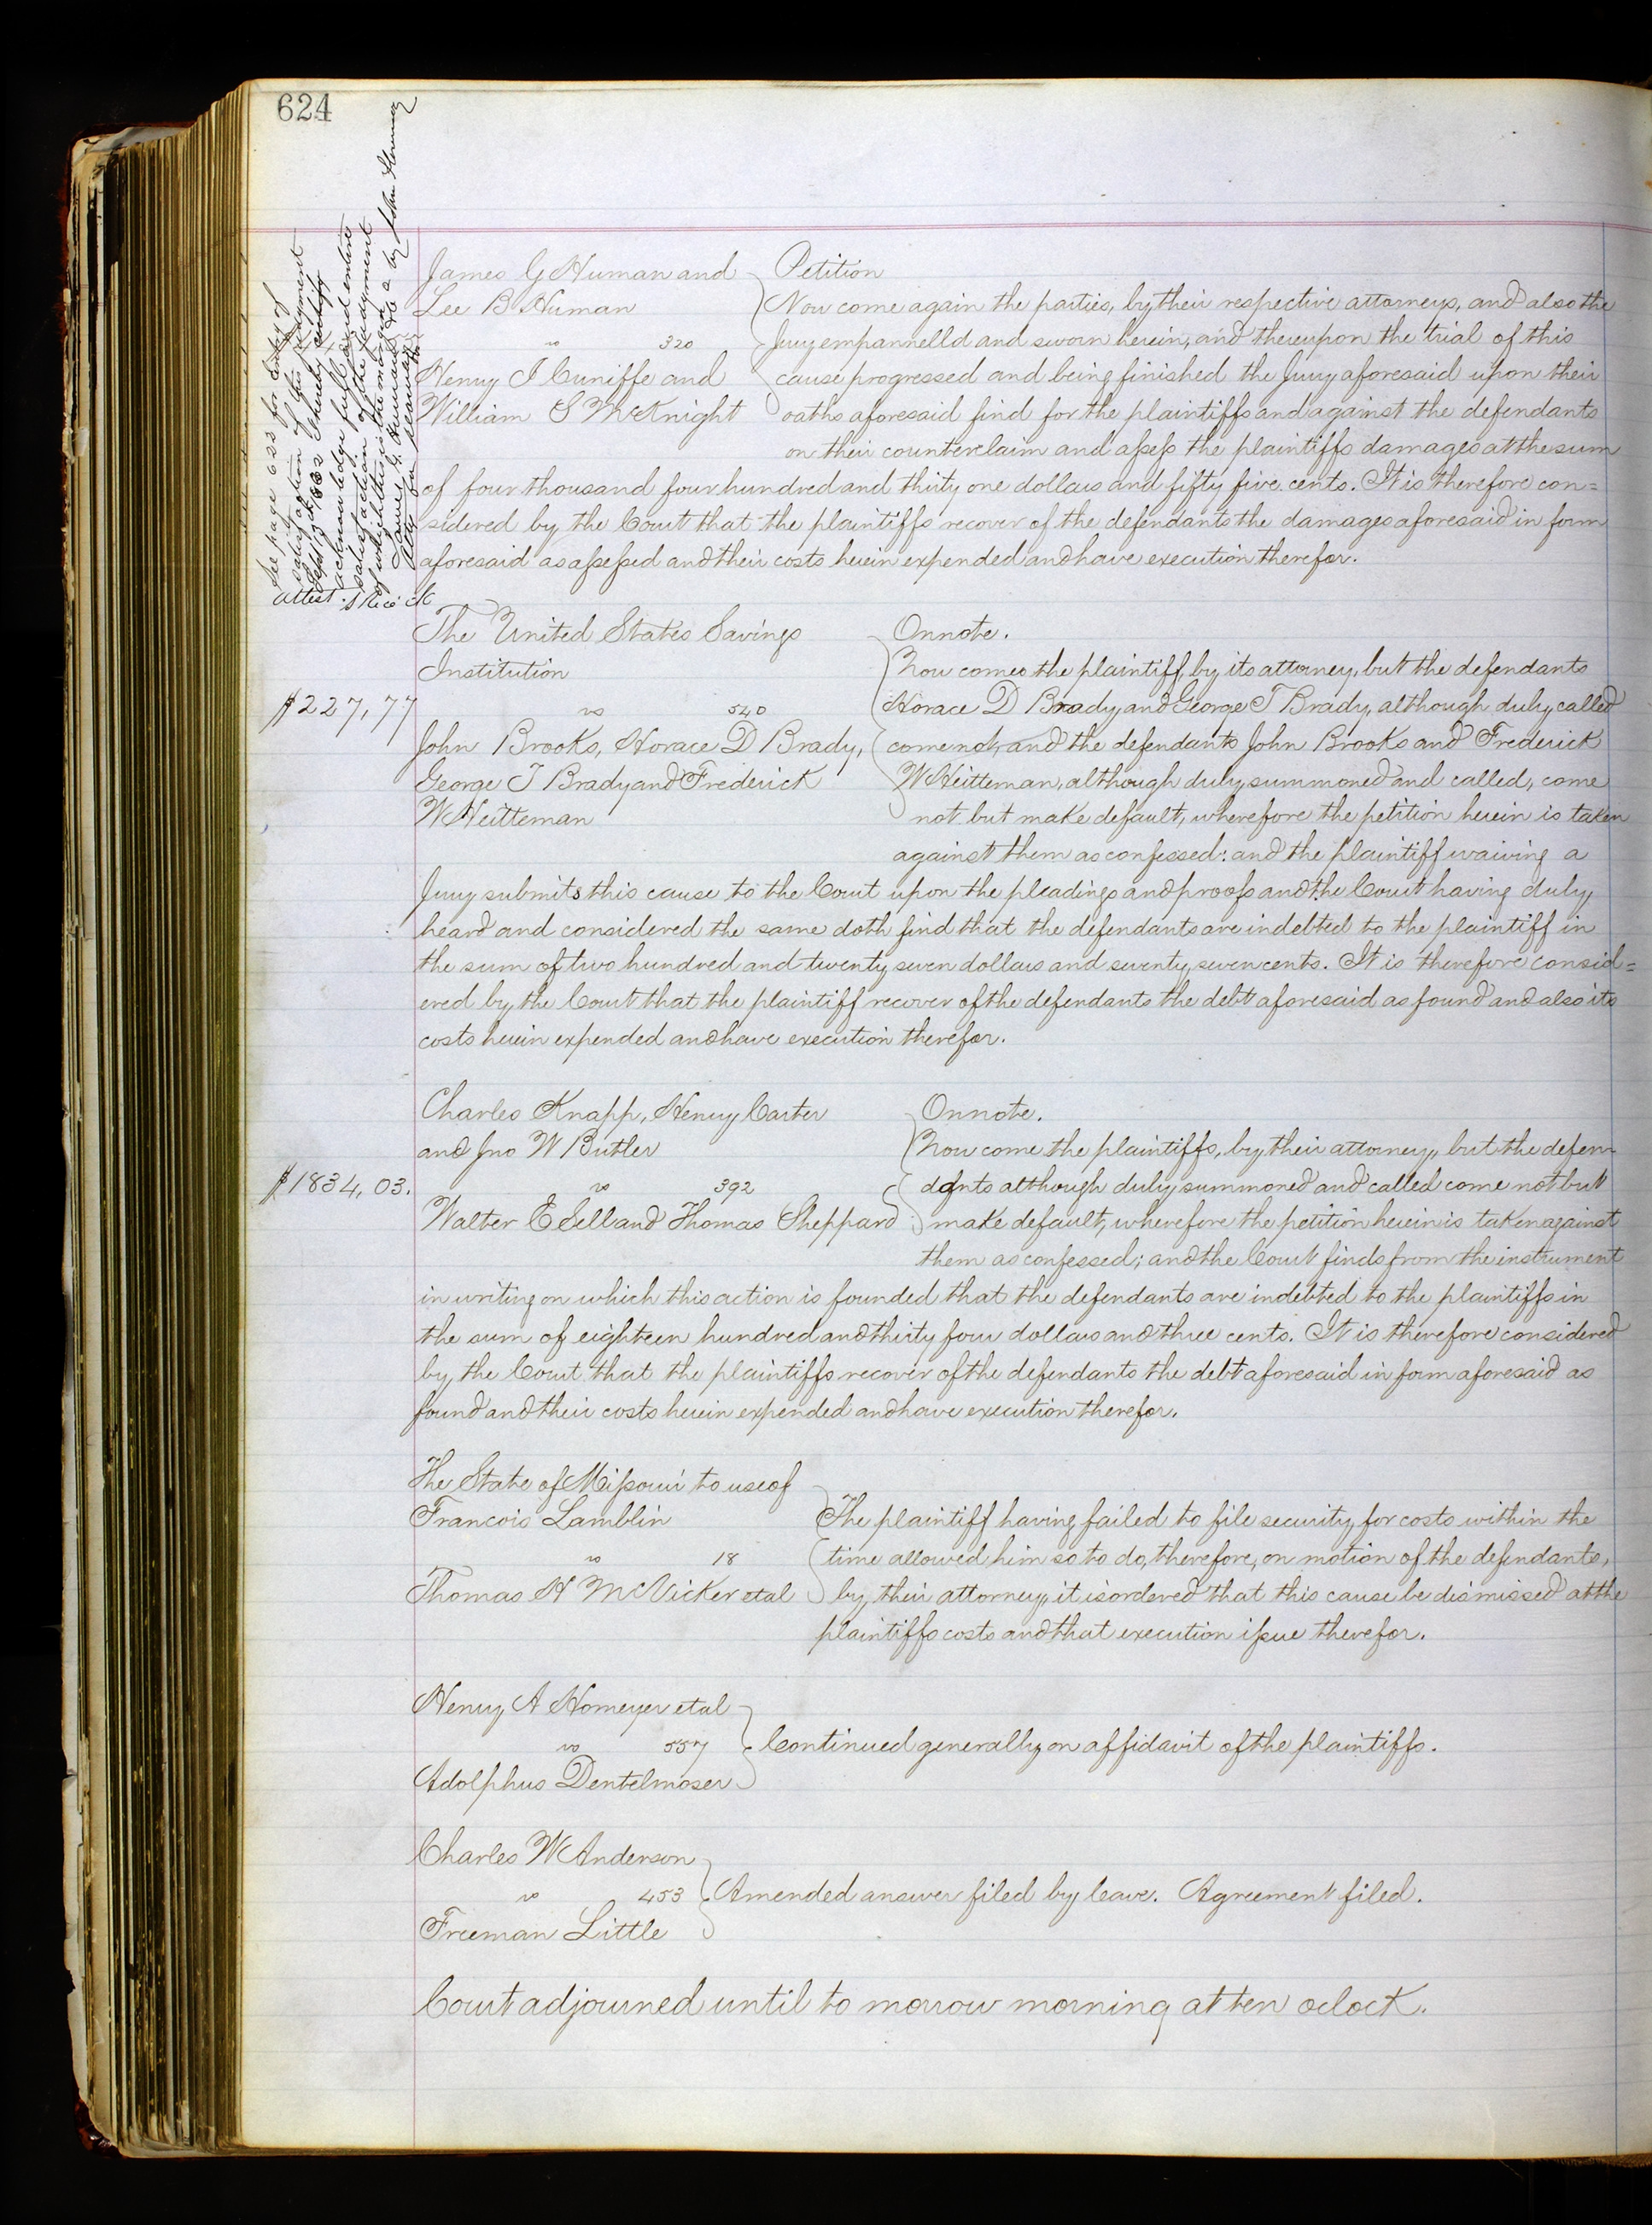 624
See page 623 for entry of
satisfaction of this judgment
Sept 1862 I hereby certify
acknowledge full and entire
satisfaction of the judgment
of which this is the margin
by John
Atty for plaintiffs
attest
James G Human and
Lee B Human
vs 320
Henry J Cuniffe and
William S McKnight
Petition
Now come again the parties, by their respective attorneys, and also the
Jury empannelld and sworn herein, and thereupon the trial of this
cause progressed and being finished the Jury aforesaid upon their
oaths aforesaid find for the plaintiffs and against the defendants
on their counterclaim and assess the plaintiffs damages at the sum
of four thousand four hundred and thirty one dollars and fifty five cents. It is therefore con=
sidered by the Court that the plaintiffs recover of the defendants the damages aforesaid in form
aforesaid as assessed and their costs herein expended and have execution therefor.
The United States Savings
Institution
$227,77
vs 540
John Brooks, Horace D Brady,
George T Brady and Frederick
W Heitteman
On note.
Now comes the plaintiff by its attorney, but the defendants
Horace D Brady and George T Brady, although duly called
come not, and the defendants John Brooks and Frederick
W Heitteman, although duly summoned and called, come
not but make default, wherefore the petition herein is taken
against them as confessed: and the plaintiff waiving a
Jury submits this cause to the Court upon the pleadings and proofs and the Court having duly
heard and considered the same doth find that the defendants are indebted to the plaintiff in
the sum of two hundred and twenty seven dollars and seventy seven cents. It is therefore consid=
ered by the Court that the plaintiff recover of the defendants the debt aforesaid as found and also its
costs herein expended and have execution therefor.
Charles Knapp, Henry Carter
and Jno W Butler
$1834,03.
vs 392
Walter E Sell and Thomas Sheppard
On note.
Now come the plaintiffs, by their attorney, but the defen-
dants although duly summoned and called come not but
make default, wherefore the petition herein is taken against
them as confessed; and the Court finds from the instrument
in writing on which this action is founded that the defendants are indebted to the plaintiffs in
the sum of eighteen hundred and thirty four dollars and three cents. It is therefore considered
by the Court that the plaintiffs recover of the defendants the debt aforesaid in form aforesaid as
found and their costs herein expended and have execution therefor.
The State of Missouri to use of
Francois Lamblin
vs 18
Thomas H McVicker et al
The plaintiff having failed to file security for costs within the
time allowed him so to do, therefore, on motion of the defendants,
by their attorney, it is ordered that this cause be dismissed at the
plaintiffs costs and that execution issue therefor.
Henry A Homeyer et al
vs 557
Adolphus Dentelmoser
Continued generally on affidavit of the plaintiffs.
Charles W Anderson
vs 453
Freeman Little
Amended answer filed by leave. Agreement filed.
Court adjourned until to morrow morning at ten oclock.